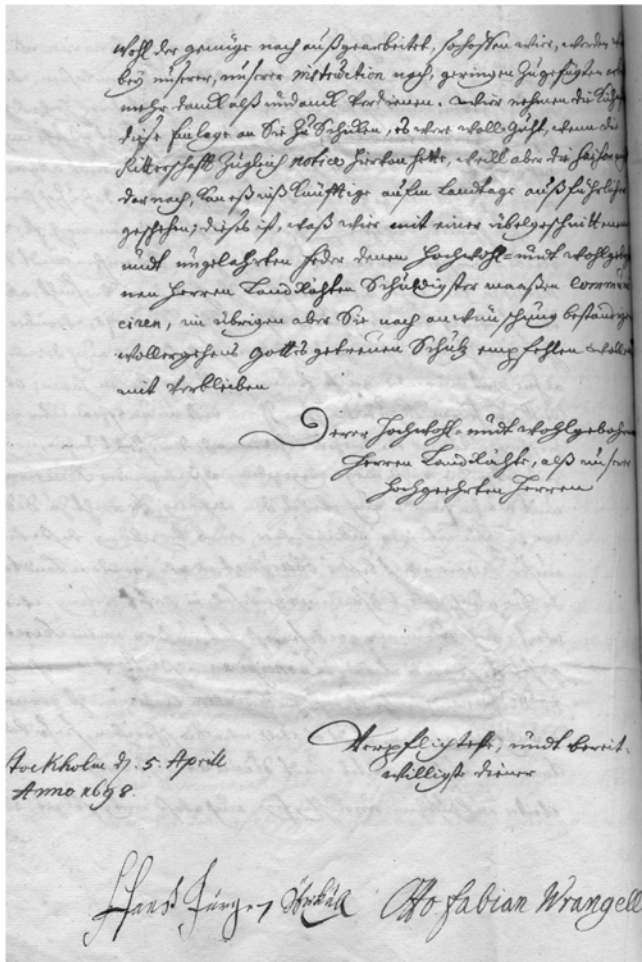 wohl der genüge nach außgearbeitet, so hoffen wier, werden
bey unserer, unserer instruction nach, geringen zugefügten
mehr danck alß undanck verdienen. Wier nehmen die
diese Einlage an Sie zu Schicken, es were woll guht, wenn die
Ritterschafft Zugleich notice hievon hette, weill aber die
darnach, kan es künfftige aufm Landtage außführlicher
geschehen; dieses ist, waß wier mit einer übelgeschnittenen
undt ungelahrten feder denen Hochwohl- undt wohlgeboh
nen Herren Landrähten Schuldigster maaßen commun
ciren, im übrigen aber Sie nach anwünschung beständigen
wollergehens Gottes getreuen Schutz empfehlen wollen
mit verbleiben
Derer Hochwohl- undt wohlgebohrnen
Herren Landrähte, alß unserer
Hochgeehrten Herren
Verpflichtete, undt bereit-
willigste diener
Stockholm d. 5. Aprill
Anno 1698.
Hanß Jürgen Üxküll Otto Fabian Wrangell